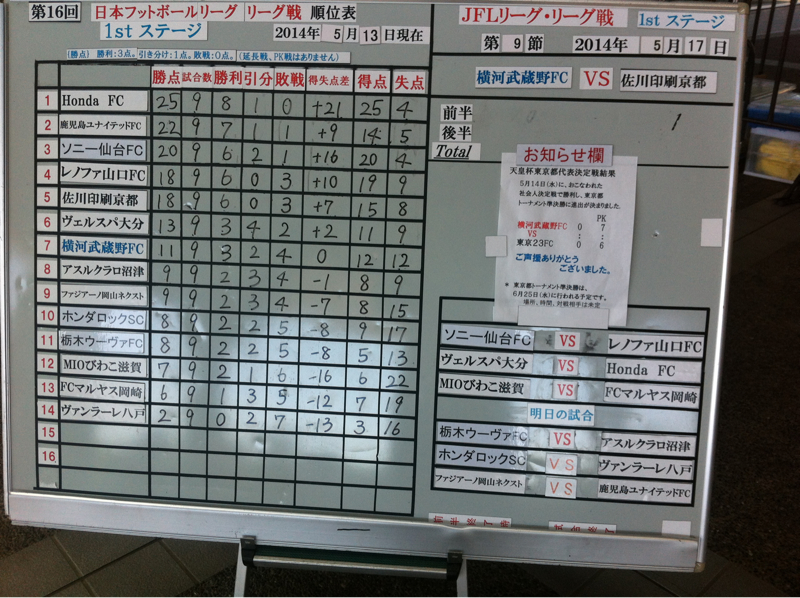 第16回 日本フットボールリーグ リーグ戦 順位表
1st ステージ 2014年 5月 13日現在
(勝点) 勝利:3点。引き分け:1点。敗戦:0点。(延長戦、PK戦はありません)
勝点 試合数 勝利 引分 敗戦 得失点差 得点 失点
1 Honda FC 25 9 8 1 0 +21 25 4
2 鹿児島ユナイテッドFC 22 9 7 1 1 +9 14 5
3 ソニー仙台FC 20 9 6 2 1 +16 20 4
4 レノファ山口FC 18 9 6 0 3 +10 19 9
5 佐川印刷京都 18 9 6 0 3 +7 15 8
6 ヴェルスパ大分 13 9 3 4 2 +2 11 9
7 横河武蔵野FC 11 9 3 2 4 0 12 12
8 アスルクラロ沼津 9 9 2 3 4 -1 8 9
9 ファジアーノ岡山ネクスト 9 9 2 3 4 -7 8 15
10 ホンダロックSC 8 9 2 2 5 -8 9 17
11 栃木ウーヴァFC 8 9 2 2 5 -8 5 13
12 MIOびわこ滋賀 7 9 2 1 6 -16 6 22
13 FCマルヤス岡崎 6 9 1 3 5 -12 7 19
14 ヴァンラーレ八戸 2 9 0 2 7 -13 3 16
15
16
JFLリーグ・リーグ戦 1st ステージ
第 9 節 2014年 5月 17日
横河武蔵野FC VS 佐川印刷京都
前半 1
後半
Total
お知らせ欄
天皇杯東京都代表決定戦結果
5月14日(水)に、おこなわれた
社会人決定戦で勝利し、東京都
トーナメント準決勝に進出が決まりました。
PK
横河武蔵野FC 0 7
VS : :
東京23FC 0 6
ご声援ありがとう
ございました。
* 東京都トーナメント準決勝は、
6月25日(水)に行われる予定です。
場所、時間、対戦相手は未定
ソニー仙台FC VS レノファ山口FC
ヴェルスパ大分 VS Honda FC
MIOびわこ滋賀 VS FCマルヤス岡崎
明日の試合
栃木ウーヴァFC VS アスルクラロ沼津
ホンダロックSC VS ヴァンラーレ八戸
ファジアーノ岡山ネクスト VS 鹿児島ユナイテッドFC